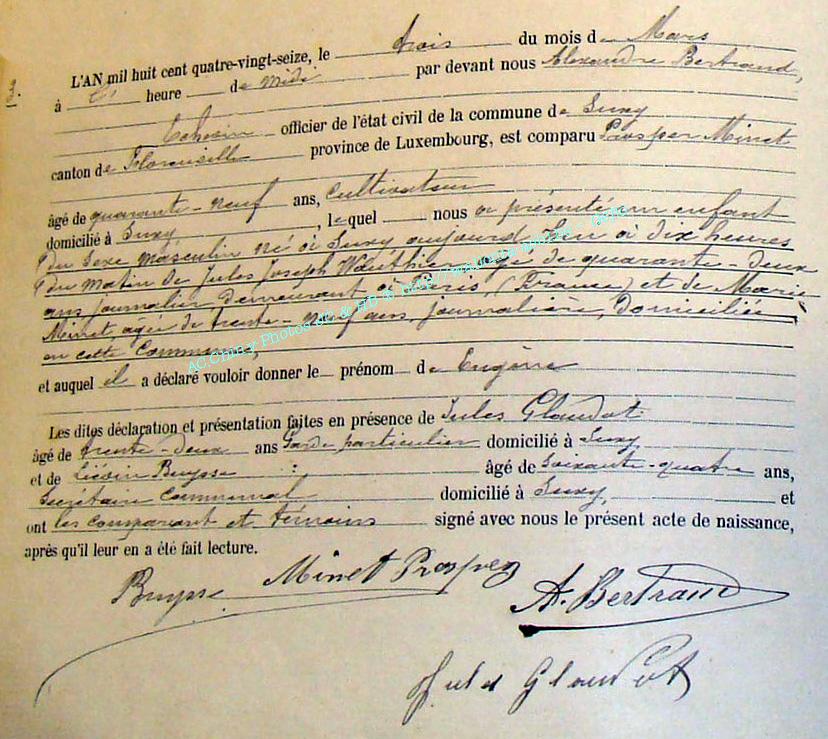 L'AN mil huit cent quatre-vingt-seize, le trois du mois de Mars
à heure de midi par devant nous Alexandre Bertrand,
Echevin officier de l'état civil de la commune de Suxy
canton de Florenville province de Luxembourg, est comparu Prosper Minet
âgé de quarante-neuf ans, Cultivateur
domicilié à Suxy, lequel nous a présenté un enfant
du sexe masculin né à Suxy aujourd'hui à dix heures
du matin de Jules Joseph Wauthier agé de quarante-deux
ans journalier demeurant à Paris, (France) et de Marie
Minet, agée de trente-neuf ans, journalière, domiciliée
en cette Commune,
et auquel il a déclaré vouloir donner le prénom de Eugène
Les dites déclaration et présentation faites en présence de Jules Glaudot
âgé de trente-deux ans Garde particulier domicilié à Suxy
et de Liévin Buysse âgé de soixante-quatre ans,
Secrétaire Communal domicilié à Suxy, et
ont les comparant et témoins signé avec nous le présent acte de naissance,
après qu'il leur en a été fait lecture.
Buysse Minet Prosper
A. Bertrand
Jules Glaudot
AC Chiny Photos